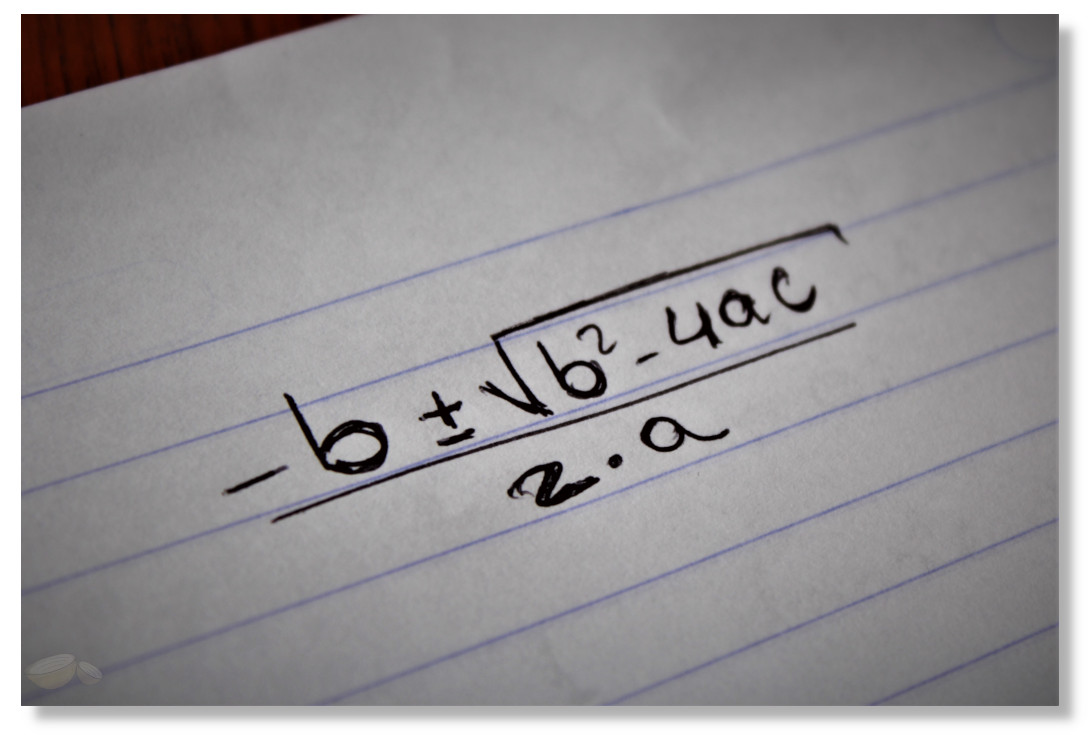 -b ± √b²-4ac
2·a